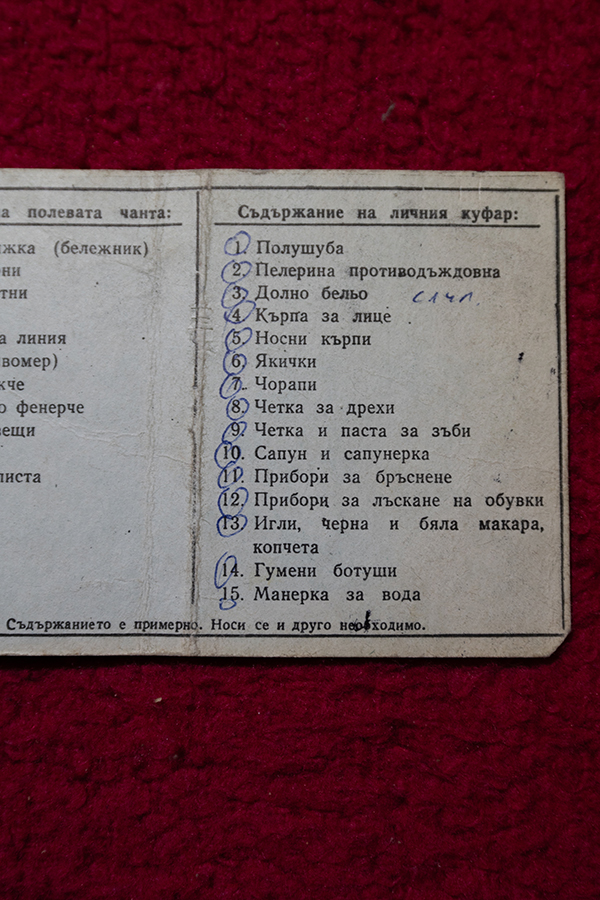 а полевата чанта:
жка (бележник)
ни
тни
а линия
вомер)
кче
о фенерче
вещи
листа
Съдържание на личния куфар:
1. Полушуба
2. Пелерина противодъждовна
3. Долно бельо
4. Кърпа за лице
5. Носни кърпи
6. Якички
7. Чорапи
8. Четка за дрехи
9. Четка и паста за зъби
10. Сапун и сапунерка
11. Прибори за бръснене
12. Прибори за лъскане на обувки
13. Игли, черна и бяла макара,
копчета
14. Гумени ботуши
15. Манерка за вода
Съдържанието е примерно. Носи се и друго необходимо.